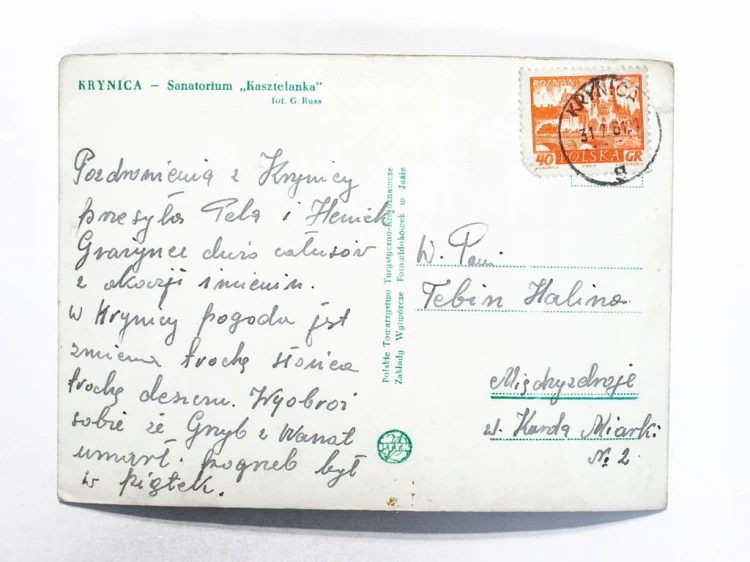 KRYNICA — Sanatorium „Kasztelanka"
fot. G. Russ
Pozdrowienia z Krynicy
przesyła Tela i Henick
Grażynce dużo całusów
z okazji imienin.
W Krynicy pogoda jest
zmiena trochę słońca
trochę deszczu. Wyobroź
sobie że Gryb z Wanat
umarł. pogrzeb był
w piątek.
Polskie Towarzystwo Turystyczno-Krajoznawcze
Zakłady Wytwórcze Fotowidokówek w Jaśle
POZNAŃ
40 POLSKA GR
KRYNICA
31.7.61
W. Pani
Tebin Halina
Międzyzdroje
ul. Karola Miarki
№ 2